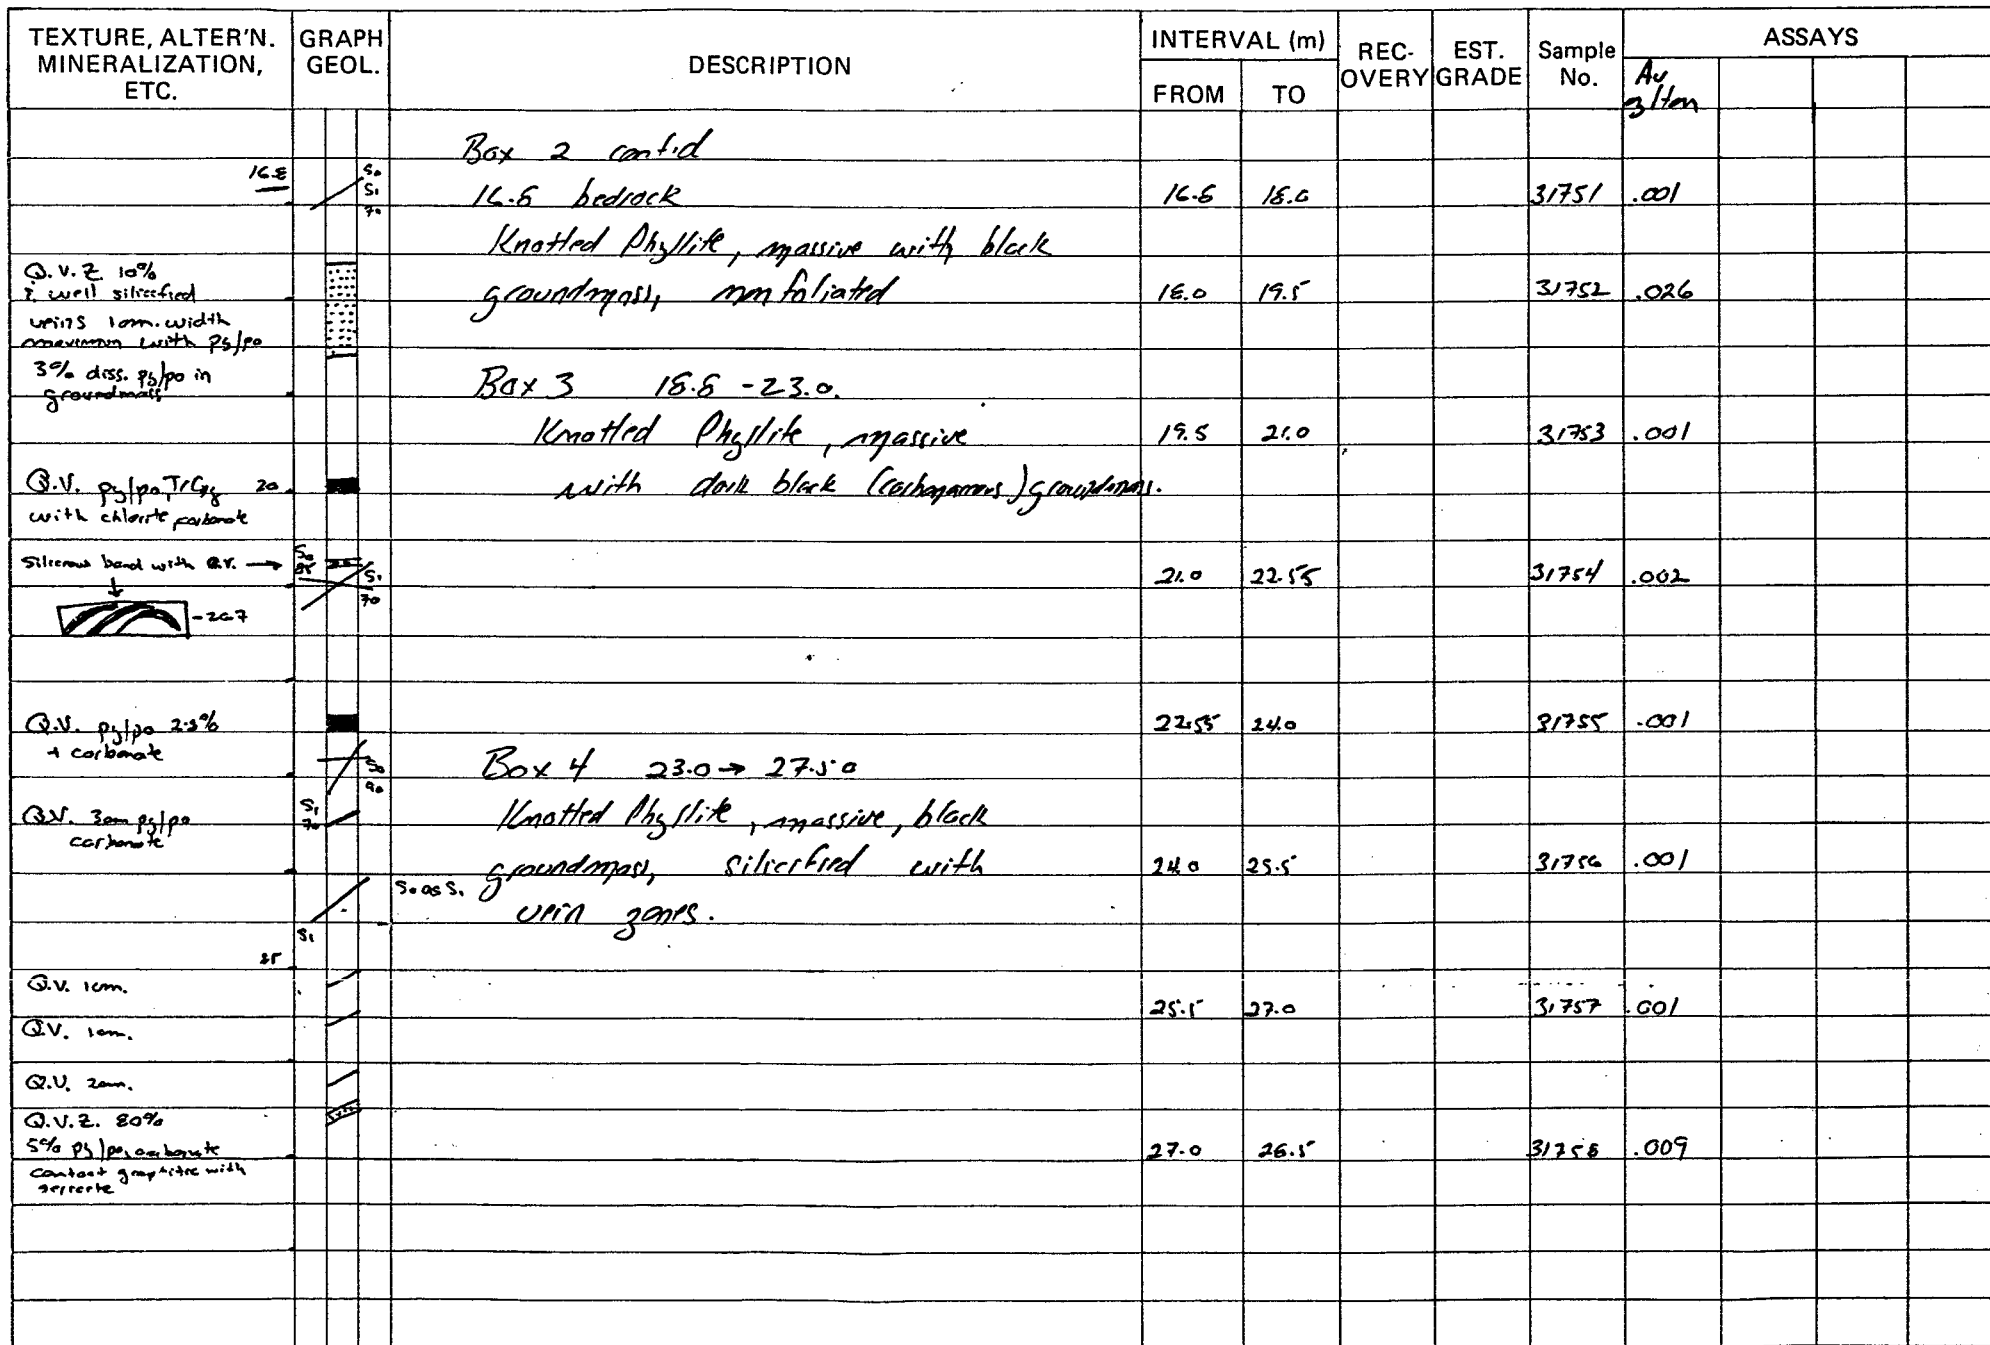 TEXTURE, ALTER'N. MINERALIZATION, ETC.
GRAPH GEOL.
DESCRIPTION
INTERVAL (m)
FROM
TO
REC-OVERY
EST. GRADE
Sample No.
ASSAYS
Au
oz/ton
Box 2 cont'd
16.8
So
S1
70
16.8 bedrock
16.8 18.0 31751 .001
Knotted Phyllite, massive with black
Q.V.Z. 10%
well silicified
groundmass, non foliated
18.0 19.5 31752 .026
veins 1cm. width
maximum with py/po
3% diss. py/po in
groundmass
Box 3 18.8 - 23.0.
Knotted Phyllite, massive
19.5 21.0 31753 .001
Q.V. py/po, Tr Cpy 20
with chlorite carbonate
with dark black (carbonaceous) groundmass.
Siliceous band with Q.V. →
So
85
S1
70
21.0 22.55 31754 .002
- 20.7
Q.V. py/po 2-3%
+ carbonate
22.55 24.0 31755 .001
So
90
Box 4 23.0 → 27.50
Q.V. 3cm py/po
carbonate
S1
70
Knotted Phyllite, massive, black
groundmass, silicified with
24.0 25.5 31756 .001
So as S1
vein zones.
S1
25
Q.V. 1cm.
25.5 27.0 31757 .001
Q.V. 1cm.
Q.V. 2cm.
Q.V.Z. 80%
5% py/po, carbonate
contact graphitic with
sericite
27.0 28.5 31758 .009